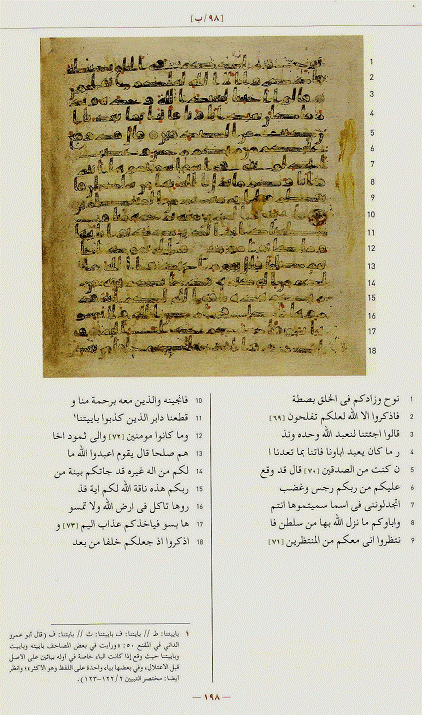 [٩٨/ب]
1
2
3
4
5
6
7
8
9
10
11
12
13
14
15
16
17
18
١ نوح وزادكم فى الخلق بصطة
٢ فاذكروا الا الله لعلكم تفلحون [٦٩]
٣ قالوا اجئتنا لنعبد الله وحده ونذ
٤ ر ما كان يعبد اباونا فاتنا بما تعدنا ا
٥ ن كنت من الصدقين [٧٠] قال قد وقع
٦ عليكم من ربكم رجس وغضب
٧ اتجدلوننى فى اسما سميتموها انتم
٨ واباوكم ما نزل الله بها من سلطن فا
٩ نتظروا انى معكم من المنتظرين [٧١]
١٠ فانجينه والذين معه برحمة منا و
١١ قطعنا دابر الذين كذبوا باييتنا١
١٢ وما كانوا مومنين [٧٢] والى ثمود اخا
١٣ هم صلحا قال يقوم اعبدوا الله ما
١٤ لكم من اله غيره قد جاتكم بينة من
١٥ ربكم هذه ناقة الله لكم اية فذ
١٦ روها تاكل فى ارض الله ولا تمسو
١٧ ها بسو فياخذكم عذاب اليم [٧٣] و
١٨ اذكروا اذ جعلكم خلفا من بعد
١ باييتنا: ط // باييتنا، ف باييتنا: ث // باييتنا: ف (قال أبو عمرو
الداني في المقنع ٥٠: «ورأيت في بعض المصاحف باييته وباييت
وباييتنا حيث وقع إذا كانت الباء خاصة في أوله بيائين على الأصل
قبل الاعتلال، وفي بعضها بياء واحدة على اللفظ وهو الأكثر»؛ وانظر
أيضا: مختصر التبيين ٢/ ١٢٢-١٢٣).
— ١٩٨ —